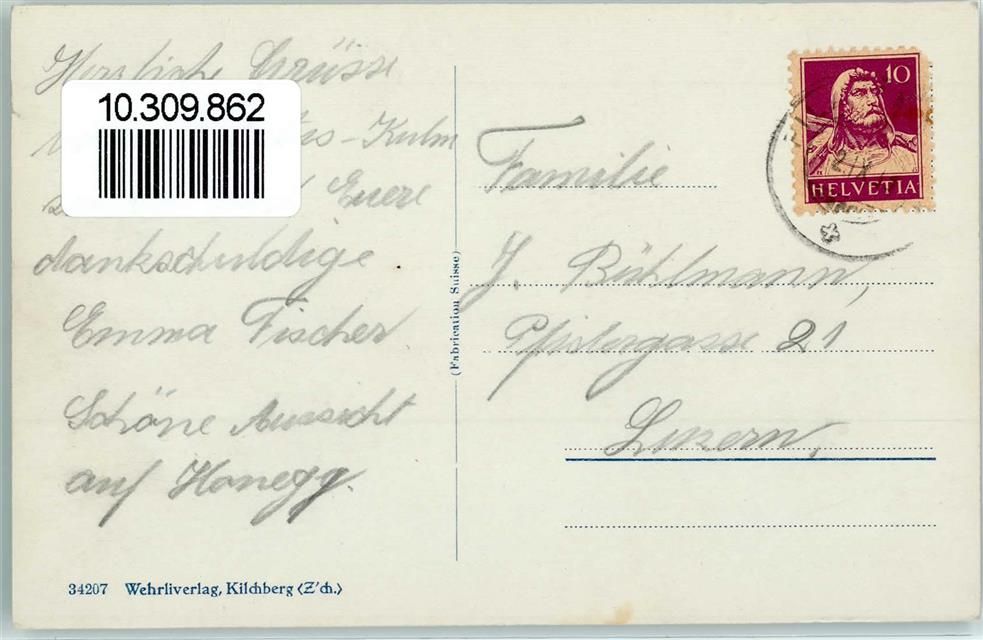 Herzliche Grüsse
10.309.862
-Kulm
Euere
dankschuldige
Emma Fischer
Schöne Aussicht
auf Honegg.
34207 Wehrliverlag, Kilchberg (Z'ch.)
(Fabrication Suisse)
10
HELVETIA
Familie
J. Bühlmann,
Pfistergasse 21
Luzern,